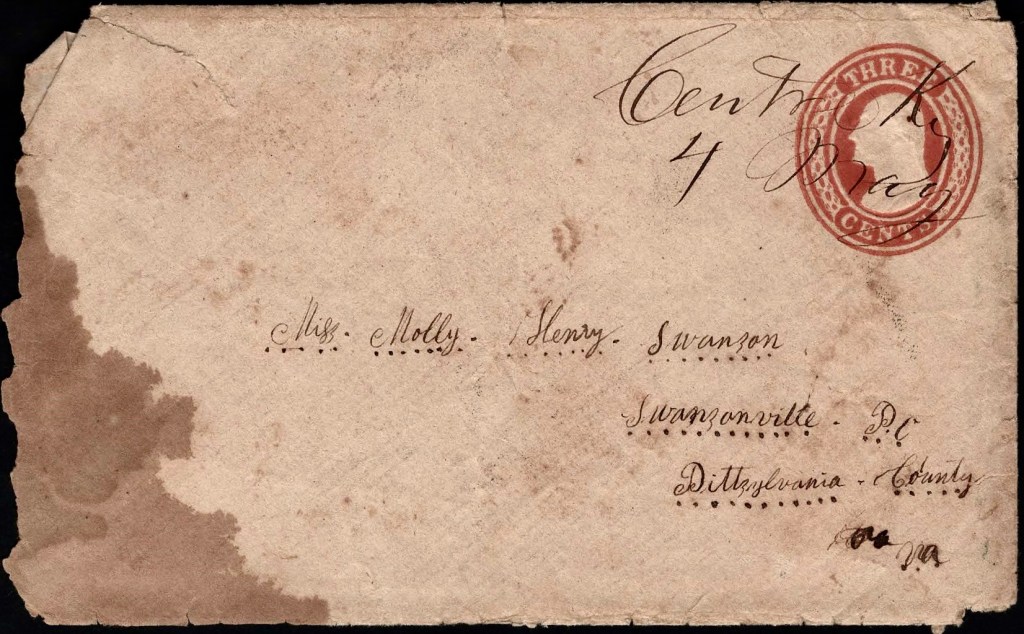 THREE
CENTS
Centre Ky
4 May
Miss. Molly. Henry. Swanson
Swansonville. P.C
Pittsylvania. County
Va